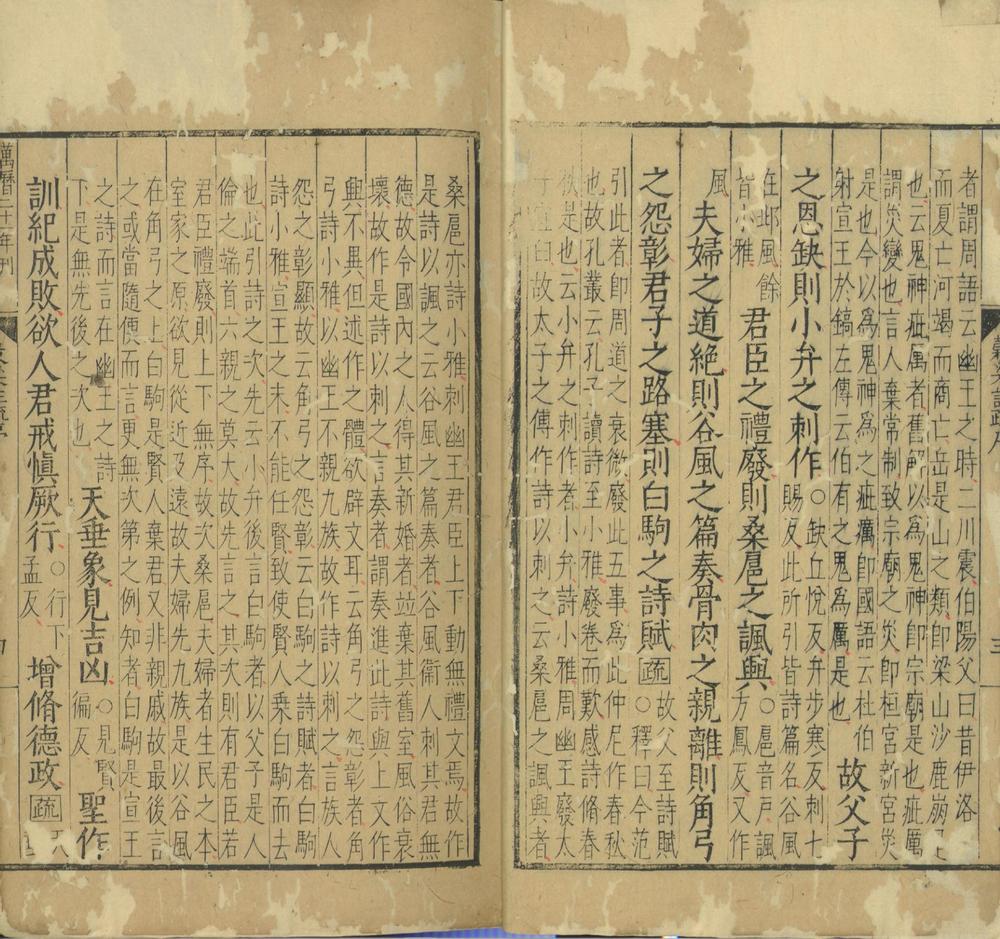 者謂周語云幽王之時二川震伯陽父曰昔伊洛
而夏亡河竭而商亡岳是山之類即梁山沙鹿崩是
也云鬼神疵厲者舊解以為鬼神即宗廟是也疵厲
謂災變也言人棄常制致宗廟之災即桓宮新宮災
是也今以為鬼神為之疵癘即國語云杜伯
射宣王於鎬左傳云伯有之鬼為厲是也 故父子
之恩缺則小弁之刺作 ○缺丘悅反弁步寒反刺七
賜反及此所引皆詩篇名谷風
在邶風餘
皆小雅 君臣之禮廢則桑扈之諷興 ○扈音戶諷
方鳳反又作
風 夫婦之道絶則谷風之篇奏骨肉之親離則角弓
之怨彰君子之路塞則白駒之詩賦 疏 故父至詩賦
○釋曰今范
引此者即周道之衰微廢此五事為此仲尼作春秋
也故孔叢云孔子讀詩至小雅廢卷而歎感詩脩春
秋是也云小弁之刺作者小弁詩小雅周幽王廢太
子宜臼故太子之傅作詩以刺之云桑扈之諷興者
桑扈亦詩小雅刺幽王君臣上下動無禮文焉故作
是詩以諷之云谷風之篇奏者谷風衞人刺其君無
德故令國內之人得其新婚者並棄其舊室風俗衰
壞故作是詩以刺之言奏者謂奏進此詩與上文作
興不異但述作之體欲辟文耳云角弓之怨彰者角
弓詩小雅以幽王不親九族故作詩以刺之言
怨之彰顯故云角弓之怨彰云白駒之詩賦者白駒
詩小雅宣王之末不能任賢致使賢人乗白駒而去
也此引詩之次先云小弁後言白駒者以父子是人
倫之端首六親之莫大故先言之其次則有君臣若
君臣禮廢則上下無序故次桑扈夫婦者生民之本
室家之原欲見從近及遠故夫婦先九族是以谷風
在角弓之上白駒是賢人棄君又非親戚故最後言
之或當隨便而言更無次第之例知者白駒是宣王
之詩而言在幽王之詩
下是無先後之次也 天垂象見吉凶 ○見賢
徧反 聖作
訓紀成敗欲人君戒愼厥行 ○行下
孟反 增脩德政 疏
萬曆二十一年刊